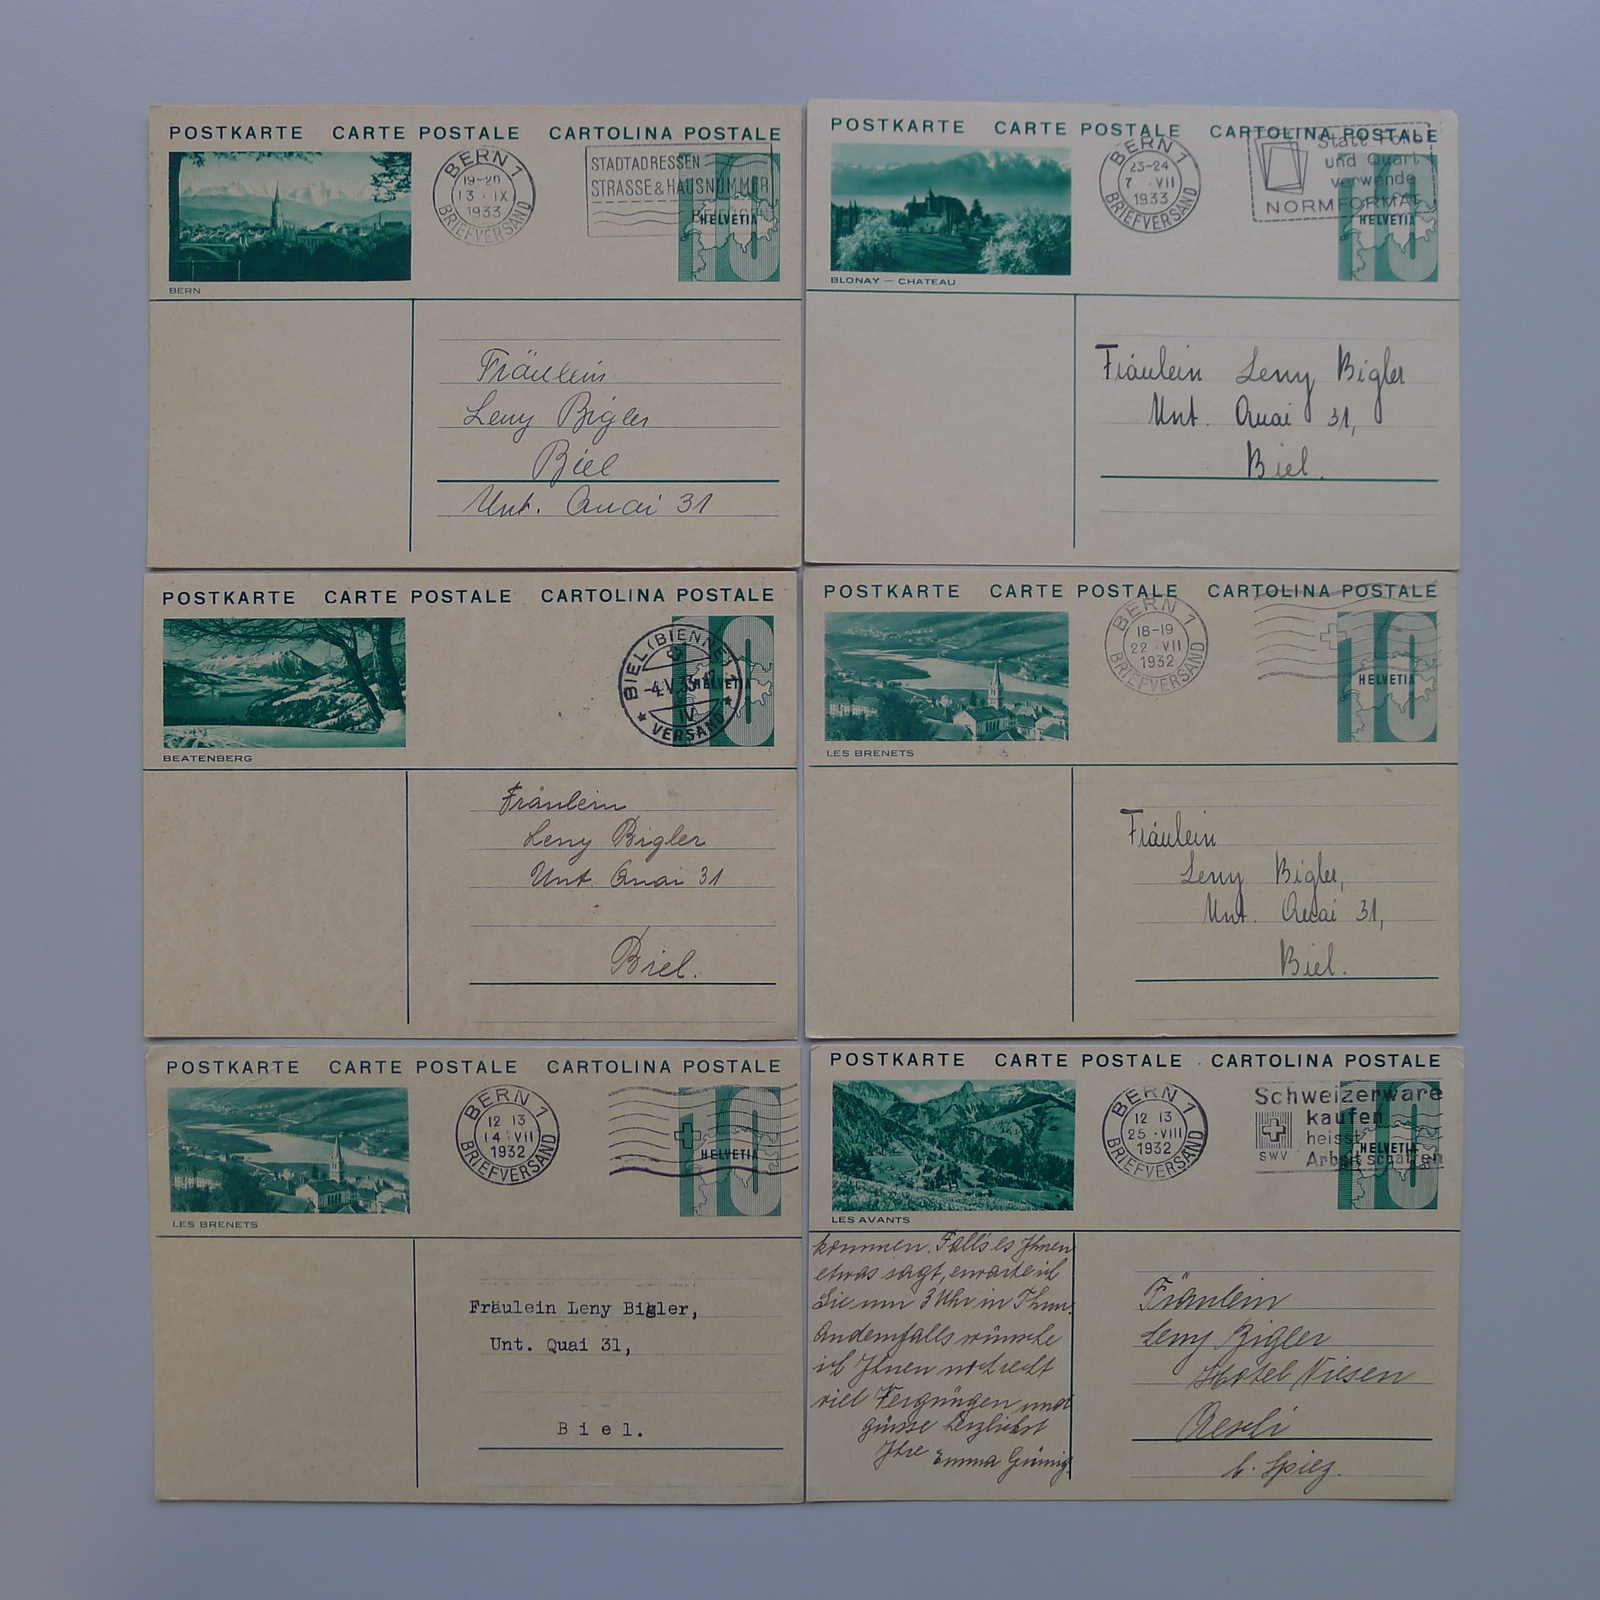 POSTKARTE CARTE POSTALE CARTOLINA POSTALE
BERN 1
19-20
13 · IX
1933
BRIEFVERSAND
STADTADRESSEN
STRASSE & HAUSNUMMER
HELVETIA
10
BERN
Fräulein
Leny Bigler
Biel
Unt. Quai 31
POSTKARTE CARTE POSTALE CARTOLINA POSTALE
BERN 1
23-24
7 · VII
1933
BRIEFVERSAND
Statt
und Quart
verwende
NORMFORMAT
HELVETIA
10
BLONAY – CHATEAU
Fräulein Leny Bigler
Unt. Quai 31,
Biel.
POSTKARTE CARTE POSTALE CARTOLINA POSTALE
BIEL (BIENNE) 1
-4.V.33
IV
VERSAND
HELVETIA
10
BEATENBERG
Fräulein
Leny Bigler
Unt. Quai 31
Biel.
POSTKARTE CARTE POSTALE CARTOLINA POSTALE
BERN 1
18-19
22 · VII
1932
BRIEFVERSAND
HELVETIA
10
LES BRENETS
Fräulein
Leny Bigler,
Unt. Quai 31,
Biel.
POSTKARTE CARTE POSTALE CARTOLINA POSTALE
BERN 1
12 13
14 · VII
1932
BRIEFVERSAND
HELVETIA
10
LES BRENETS
Fräulein Leny Bigler,
Unt. Quai 31,
Biel.
POSTKARTE CARTE POSTALE CARTOLINA POSTALE
BERN 1
12 13
25 · VIII
1932
BRIEFVERSAND
Schweizerware
kaufen
heisst
Arbeit schaffen
SWV
HELVETIA
10
LES AVANTS
kommen. Falls es Ihnen
etwas sagt, erwarte ich
Sie um 3 Uhr in Thun.
Andernfalls wünsche
ich Ihnen noch recht
viel Vergnügen und
grüsse herzlichst
Ihre Emma
Fräulein
Leny Bigler
Hotel Niesen
Aeschi
b. Spiez.